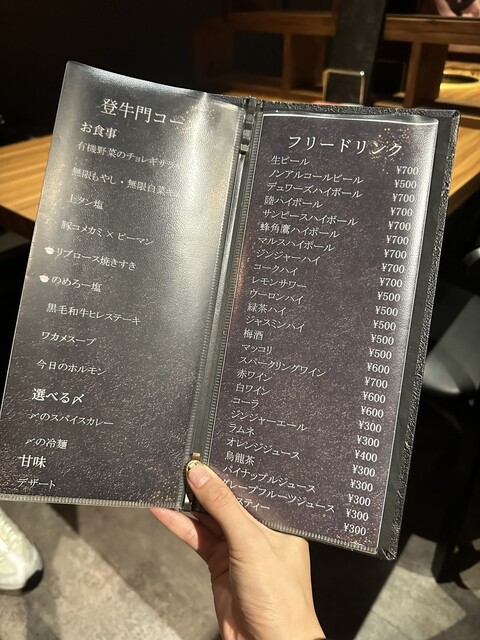 登牛門コー
お食事
有機野菜のチョレギサラ
無限もやし・無限白菜キ
上タン塩
豚コメカミ×ピーマン
リブロース焼きすき
のめろー塩
黒毛和牛ヒレステーキ
ワカメスープ
今日のホルモン
選べる〆
〆のスパイスカレー
〆の冷麺
甘味
デザート
フリードリンク
生ビール ¥700
ノンアルコールビール ¥500
デュワーズハイボール ¥700
陸ハイボール ¥700
サンピースハイボール ¥700
蜂角鷹ハイボール ¥700
マルスハイボール ¥700
ジンジャーハイ ¥700
コークハイ ¥700
レモンサワー ¥500
ウーロンハイ ¥500
緑茶ハイ ¥500
ジャスミンハイ ¥500
梅酒 ¥500
マッコリ ¥600
スパークリングワイン ¥700
赤ワイン ¥600
白ワイン ¥600
コーラ ¥300
ジンジャーエール ¥300
ラムネ ¥400
オレンジジュース ¥300
烏龍茶 ¥300
パイナップルジュース ¥300
グレープフルーツジュース ¥300
スティー ¥300